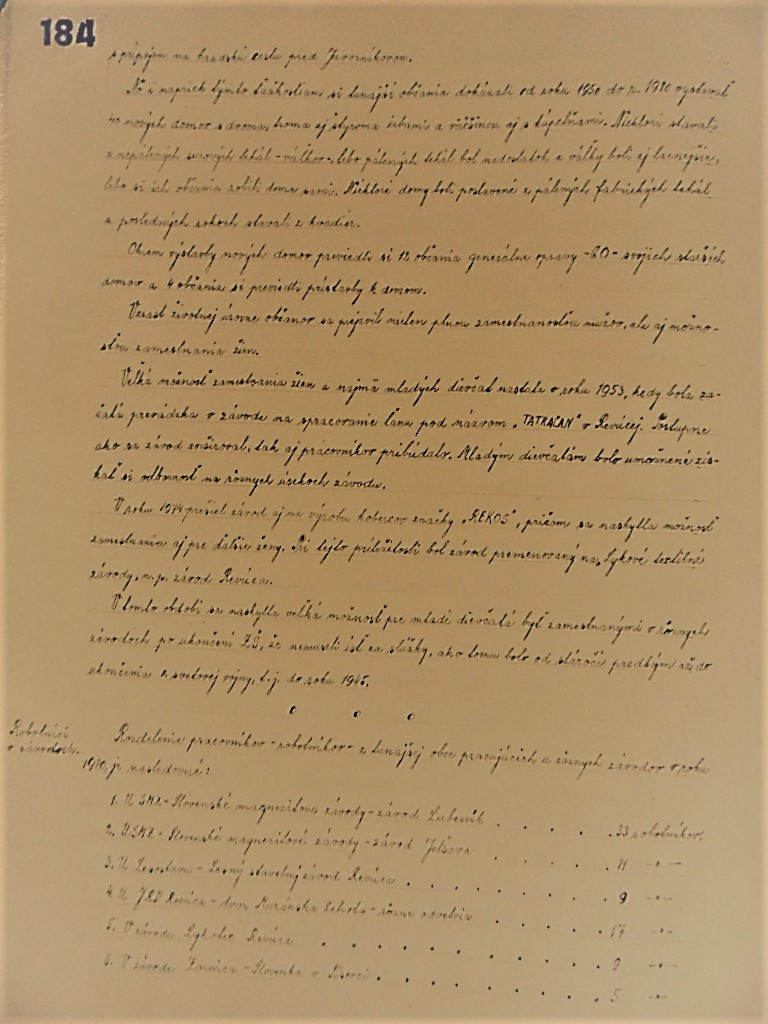 184
s prípojom na hradskú cestu pred Javorníkovou.
No i napriek týmto ťažkostiam si tunajší občania dokázali od roku 1950 do r. 1980 vystavať
40 nových domov s dvoma, troma aj štyroma izbami a väčšinou aj s kúpeľňami. Niektorí stavali
z nepálených surových tehál -válkov-, lebo pálených tehál bol nedostatok a války boli aj lacnejšie,
lebo si ich občania robili doma sami. Niektoré domy boli postavené z pálených fabrických tehál
a posledných rokoch stavali z kvadier.
Okrem výstavby nových domov previedli si 12 občania generálne opravy -GO- svojich starších
domov a 4 občania si previedli prístavby k domom.
Vzrast životnej úrovne občanov sa prejavil nielen plnou zamestnanosťou mužov, ale aj možno-
sťou zamestnania žien.
Veľká možnosť zamestnania žien a najmä mladých dievčat nastala v roku 1953, kedy bola za-
čatá prevádzka v závode na spracovanie ľanu pod názvom „TATRAĽAN" v Revúcej. Postupne
ako sa závod rozširoval, tak aj pracovníkov pribúdalo. Mladým dievčatám bolo umožnené zís-
kať si odbornosť na rôznych úsekoch závodu.
V roku 1974 prešiel závod aj na výrobu kobercov značky „REKOS", pričom sa naskytla možnosť
zamestnania aj pre ďalšie ženy. Pri tejto príležitosti bol závod premenovaný na „Lykové textilné
závody, n.p. závod Revúca.
V tomto období sa naskytla veľká možnosť pre mladé dievčatá byť zamestnanými v rôznych
závodoch po ukončení ZŠ, že nemuseli ísť za slúžky, ako tomu bolo od stáročí predtým až do
ukončenia 2 svetovej vojny, t.j. do roku 1945.
Robotníci
v závodoch.
Rozdelenie pracovníkov -robotníkov- z tunajšej obce pracujúcich u rôznych závodov v roku
1980, je nasledovné:
1. U SMZ-Slovenské magnezitové závody-závod Lubeník . . . . . 33 robotníkov,
2. U SMZ - Slovenské magnezitové závody - závod Jelšava . . . . . 11 -"-
3. U Lesostavu - Lesný stavebný závod Revúca . . . . . 9 -"-
4. U JRD Revúca - dvor Muránska Lehota - rôzne odvetvia . . . . . 17 -"-
5. V závode Lykotex Revúca . . . . . 9 -"-
6. V závode Zornica - Slovenka v . . . . . 5 -"-